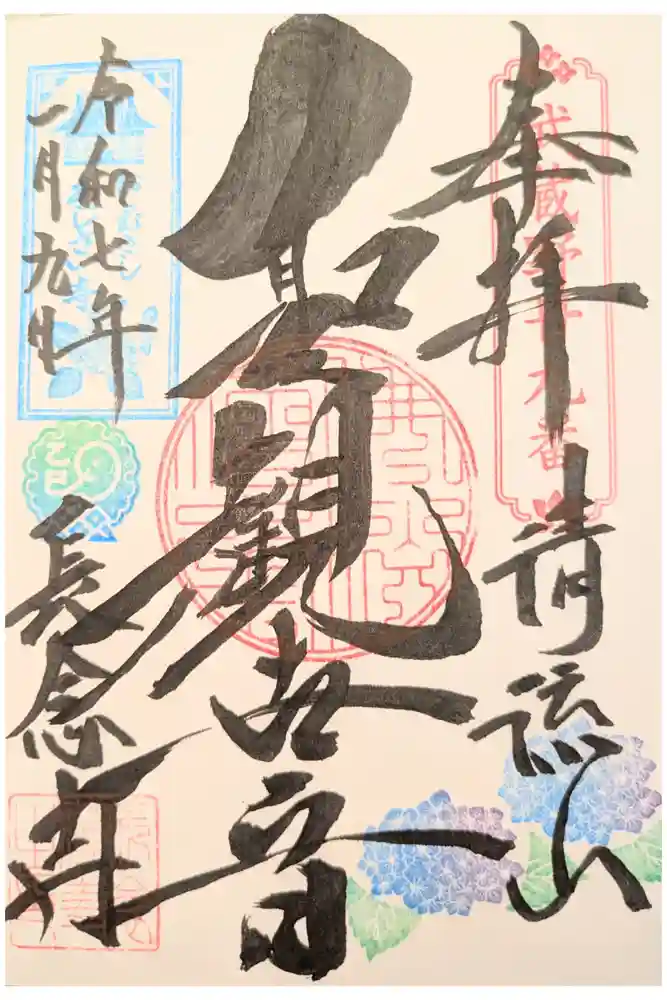 奉拝
武蔵野廿九番
清流山
聖観世音
令和七年
一月九日
巳
長念寺